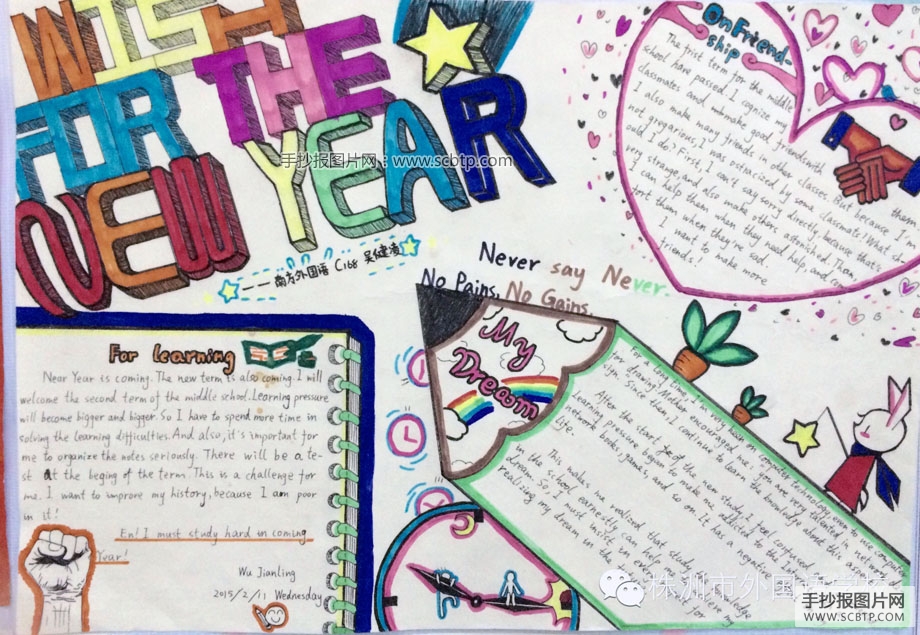 WISH
FOR THE
NEW YEAR
手抄报图片网：www.scbtp.com
——南方外国语 C168 吴健凌
On Friend-
ship
The frist term for the middle
school have passed. I cognize my
classmates and make good friends with them.
I also make many friends in other classes. But because I'm
not gregarious, I was ostracized by some classmate! What sh-
ould I do? First, I can't say sorry directly, because that's
very strange, and also make others astonished. Then,
I can help them when they need help, and com-
fort them when they're sad.
I want to make more
friends!
Never say Never.
No Pains, No Gains.
For learning
Near Year is coming. The new term is also coming. I will
welcome the second term of the middle school. Learning pressure
will become bigger and bigger. So I have to spend more time in
solving the learning difficulties. And also, it's important for
me to organize the notes seriously. There will be a te-
st at the beging of the term. This is a challenge for
me. I want to improve my history, because I am poor
in it!
En! I must study hard in coming
Year!
Wu Jianling
2015/2/11 Wednesday
My
Dream
For a long time, I'm very keen on computer technology, even to use computer
for drawing. Mother encouraged me: "You are very talented in network
sign. Since then, I continue to learn the knowledge about this aspect.
After the start of the new study, I feel confused.
Learning pressure began to make me addicted to the Internet
network books, games and so on, it has a negative
life.
This makes me realized that study
in the school earnestly can help me
dreams. So I must insist in every
realizing my dream in the
株洲市外国语学校
手抄报图片网
WWW.SCBTP.COM